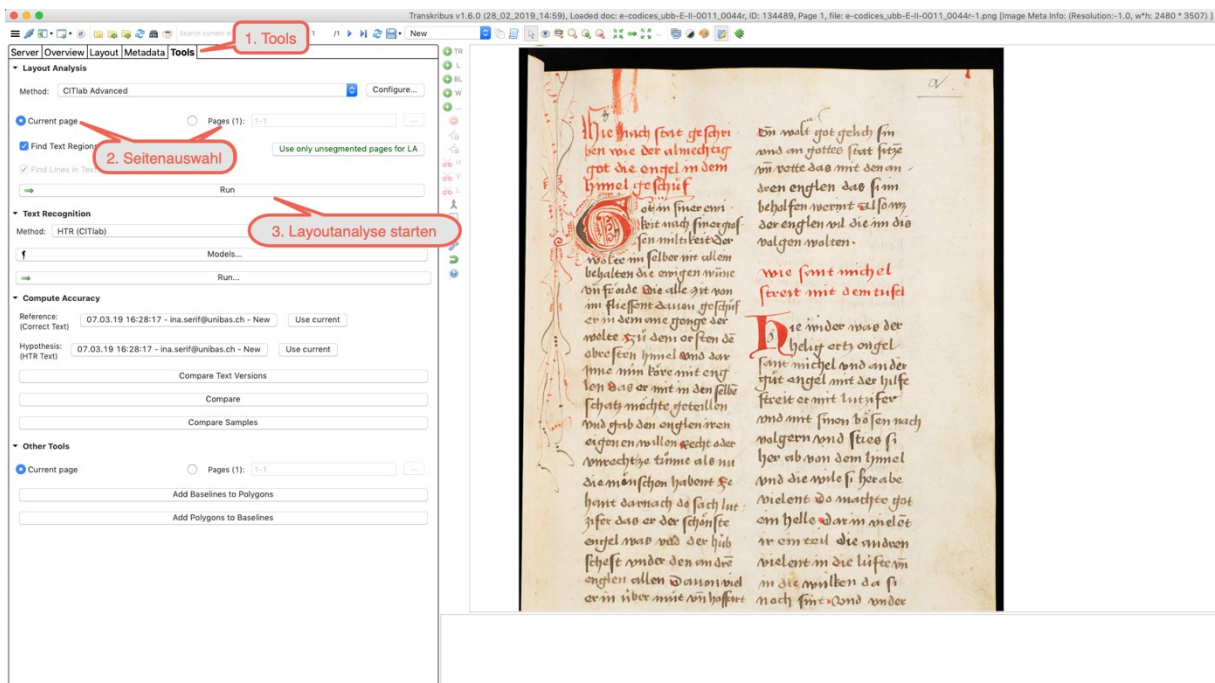 Transkribus v1.6.0 (28_02_2019_14:59), Loaded doc: e-codices_ubb-E-II-0011_0044r, ID: 134489, Page 1, file: e-codices_ubb-E-II-0011_0044r-1.png [Image Meta Info: (Resolution:-1.0, w*h: 2480 * 3507) ]
Search current 1 /1 New
1. Tools
Server Overview Layout Metadata Tools
Layout Analysis
Method: CITlab Advanced Configure...
Current page Pages (1): 1-1 ...
2. Seitenauswahl
Find Text Regions Use only unsegmented pages for LA
Find Lines in Text
Run
3. Layoutanalyse starten
Text Recognition
Method: HTR (CITlab)
Models...
Run...
Compute Accuracy
Reference: (Correct Text) 07.03.19 16:28:17 - ina.serif@unibas.ch - New Use current
Hypothesis: (HTR Text) 07.03.19 16:28:17 - ina.serif@unibas.ch - New Use current
Compare Text Versions
Compare
Compare Samples
Other Tools
Current page Pages (1): 1-1 ...
Add Baselines to Polygons
Add Polygons to Baselines
TR
L
BL
W
...
H
V
L
Hie nach stat geschri
ben wie der almechtig
got die engel in dem
himel geschůf
Got in siner ewi
keit nach siner gros
sen miltikeit Der
wolte im selber nit allein
behalten die ewigen wūne
vn̄ fröide Die alle zit von
im fliessent dauon geschůf
er in dem ane gonge der
welte Zů dem ersten dē
obresten himel vnd dar
inne nún köre mit eng
len Das er mit in den selbē
schatz möchte geteillen
vnd gab den englen iren
eigenen willen Recht oder
vnrecht ze tůnne als nu
die mönschen habent Ze
hant darnach do sach lut
zifer das er der schönste
engel was vnd der húb
schest vnder den andrē
englen allen Dauon viel
er in úber můt vn̄ hoffart
vn̄ wolt got gelich sin
vnd an gottes stat sitzē
vn̄ rette das mit den an
dren englen das si im
beholfen werint Also wz
der englen vil die im dis
volgen wolten.
wie sant michel
streit mit dem tufel
Hie wider was der
helig ertz engel
sant michel vnd ander
gůt engel mit der hilfe
streit er mit lutzifer
vnd mit sinen bösen nach
volgern vnd sties si
her ab von dem himel
vnd die wile si her abe
vielent Do machte got
ein helle Dar in vielēt
ir ein teil Die andren
vielent in die lúfte vn̄
in die wulken da si
noch sint Vnd vnder